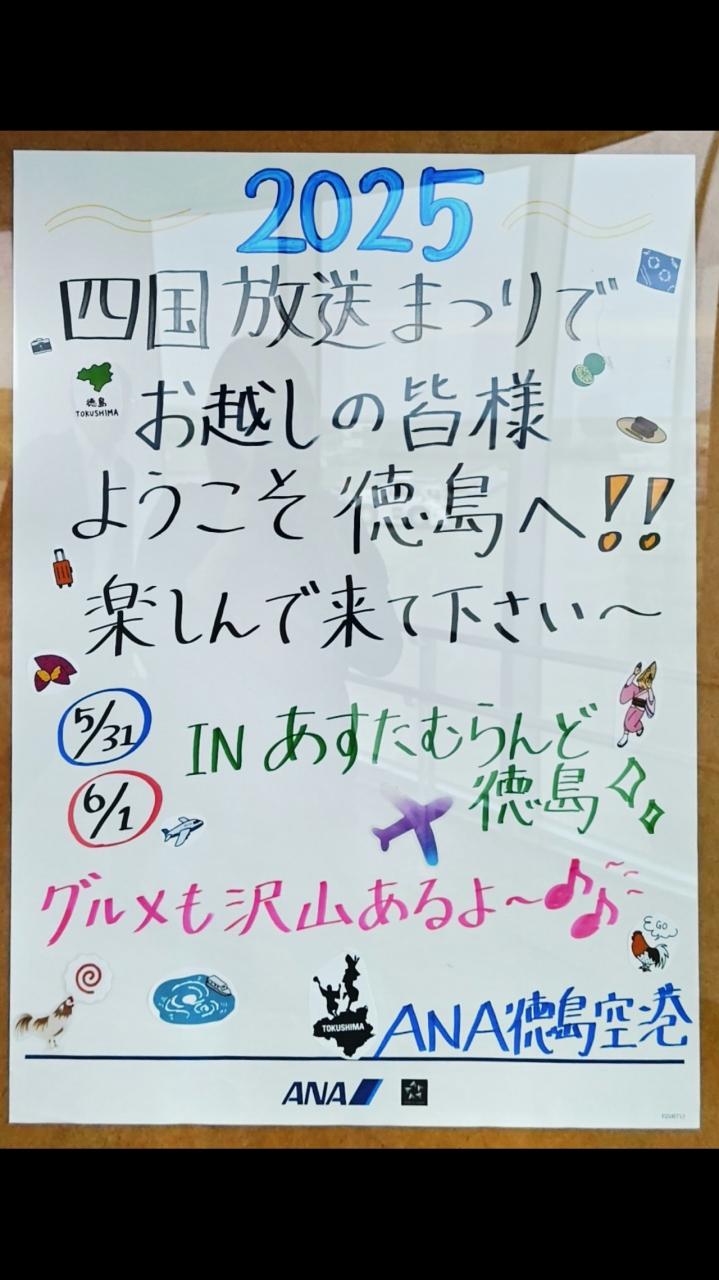 2025
四国放送まつりで
徳島
TOKUSHIMA
お越しの皆様
ようこそ徳島へ!!
楽しんで来て下さい〜
5/31
IN あすたむらんど
徳島
6/1
グルメも沢山あるよ〜♪♪
GO
TOKUSHIMA
ANA徳島空港
ANA